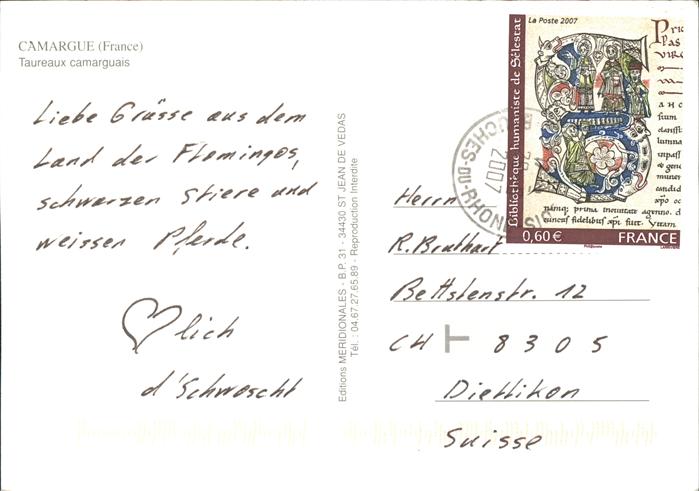 CAMARGUE (France)
Taureaux camarguais
Liebe Grüsse aus dem
Land der Flamingos,
schwarzen Stiere und
weissen Pferde.
♡lich
d'Schwoscht
Editions MERIDIONALES - B.P. 31 - 34430 ST JEAN DE VEDAS
Tél. : 04.67.27.65.89 - Reproduction Interdite
La Poste 2007
Bibliothèque humaniste de Sélestat
0,60 €
FRANCE
BOUCHES-DU-RHONE
2007
Herrn
R.
Bettstenstr. 12
CH T 8305
Dietlikon
Suisse